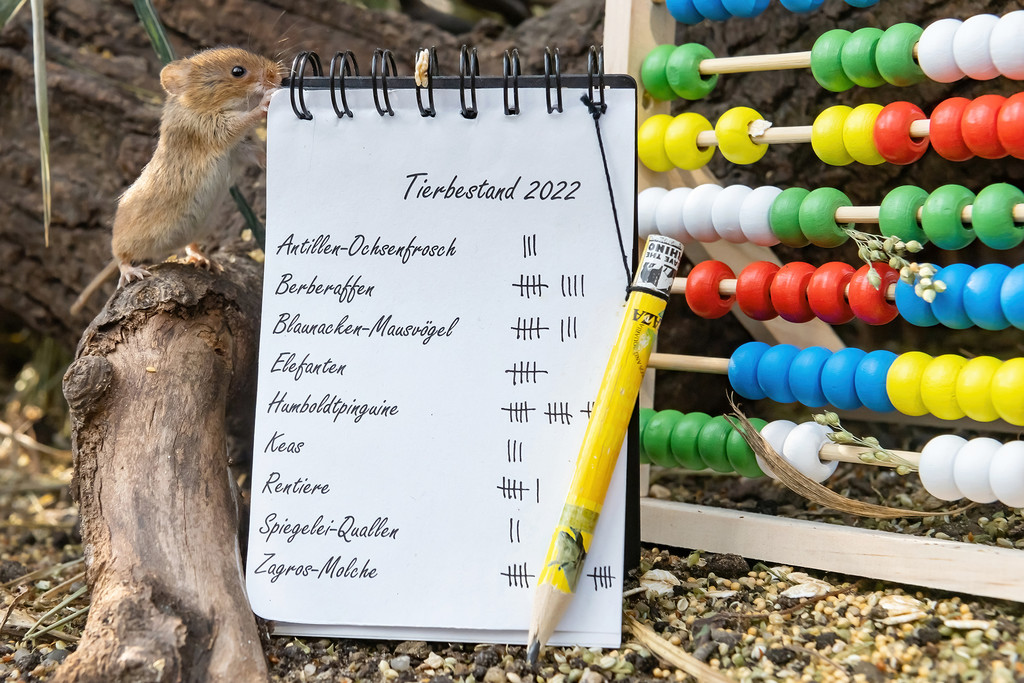 Tierbestand 2022
Antillen-Ochsenfrosch
Berberaffen
Blaunacken-Mausvögel
Elefanten
Humboldtpinguine
Keas
Rentiere
Spiegelei-Quallen
Zagros-Molche